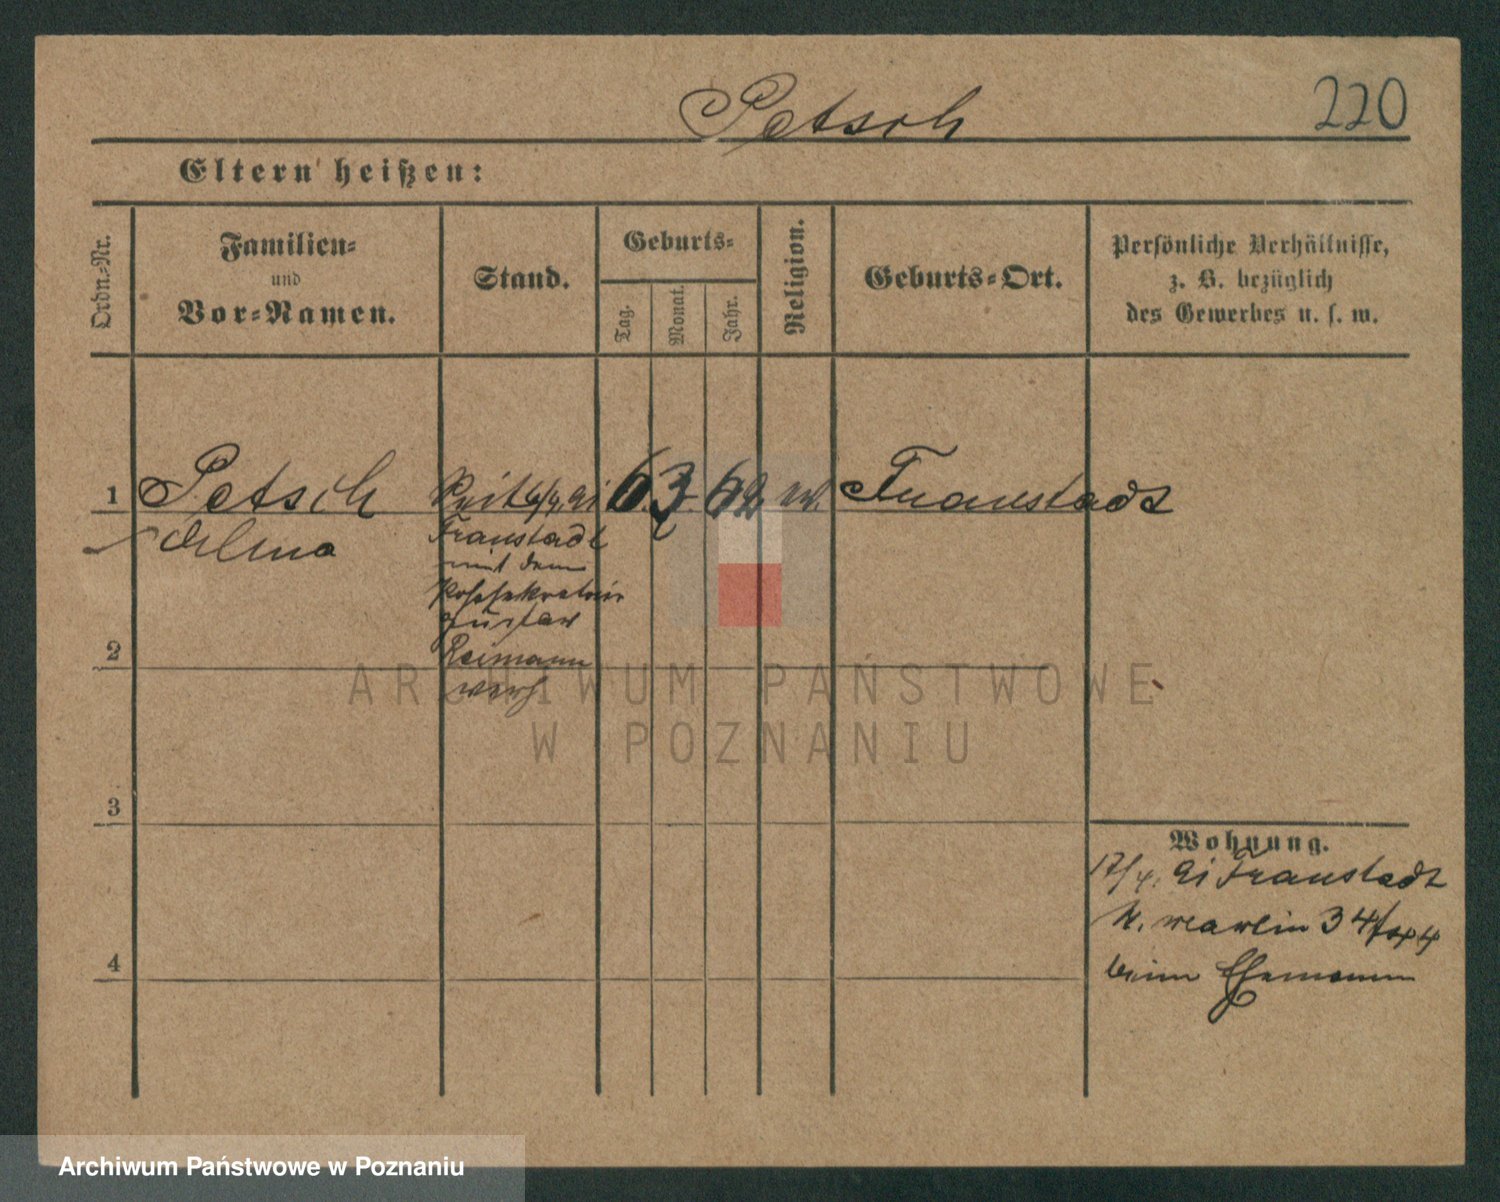 Petsch
220
Eltern heißen:
Ordn.-Nr.
Familien-
und
Vor-Namen.
Stand.
Geburts-
Tag.
Monat.
Jahr.
Religion.
Geburts-Ort.
Persönliche Verhältnisse,
z. B. bezüglich
des Gewerbes u. s. w.
1 Petsch seit 6/4. 91 6. 3. 62 ev. Fraustadt
Alma
Fraustadt
mit dem
Postsekretair
Gustav
2 Reimann
verh
3
4
Wohnung.
17/4. 91 Fraustadt
St. Martin 34/
beim Ehemann
ARCHIWUM PAŃSTWOWE
W POZNANIU
Archiwum Państwowe w Poznaniu